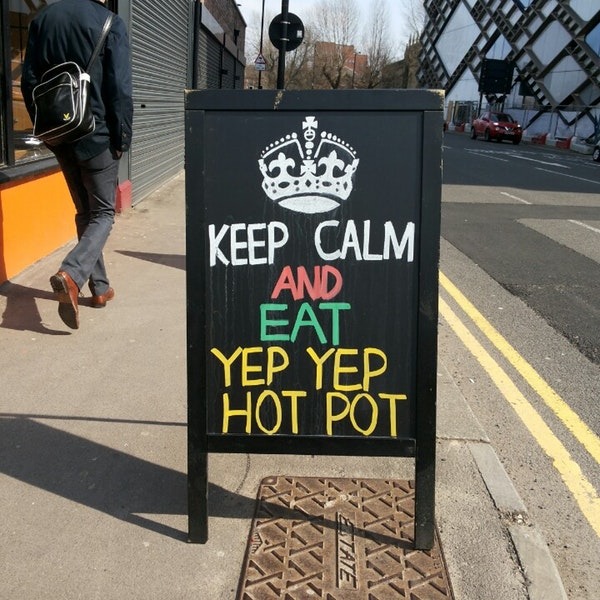 KEEP CALM
AND
EAT
YEP YEP
HOT POT
ESTATE